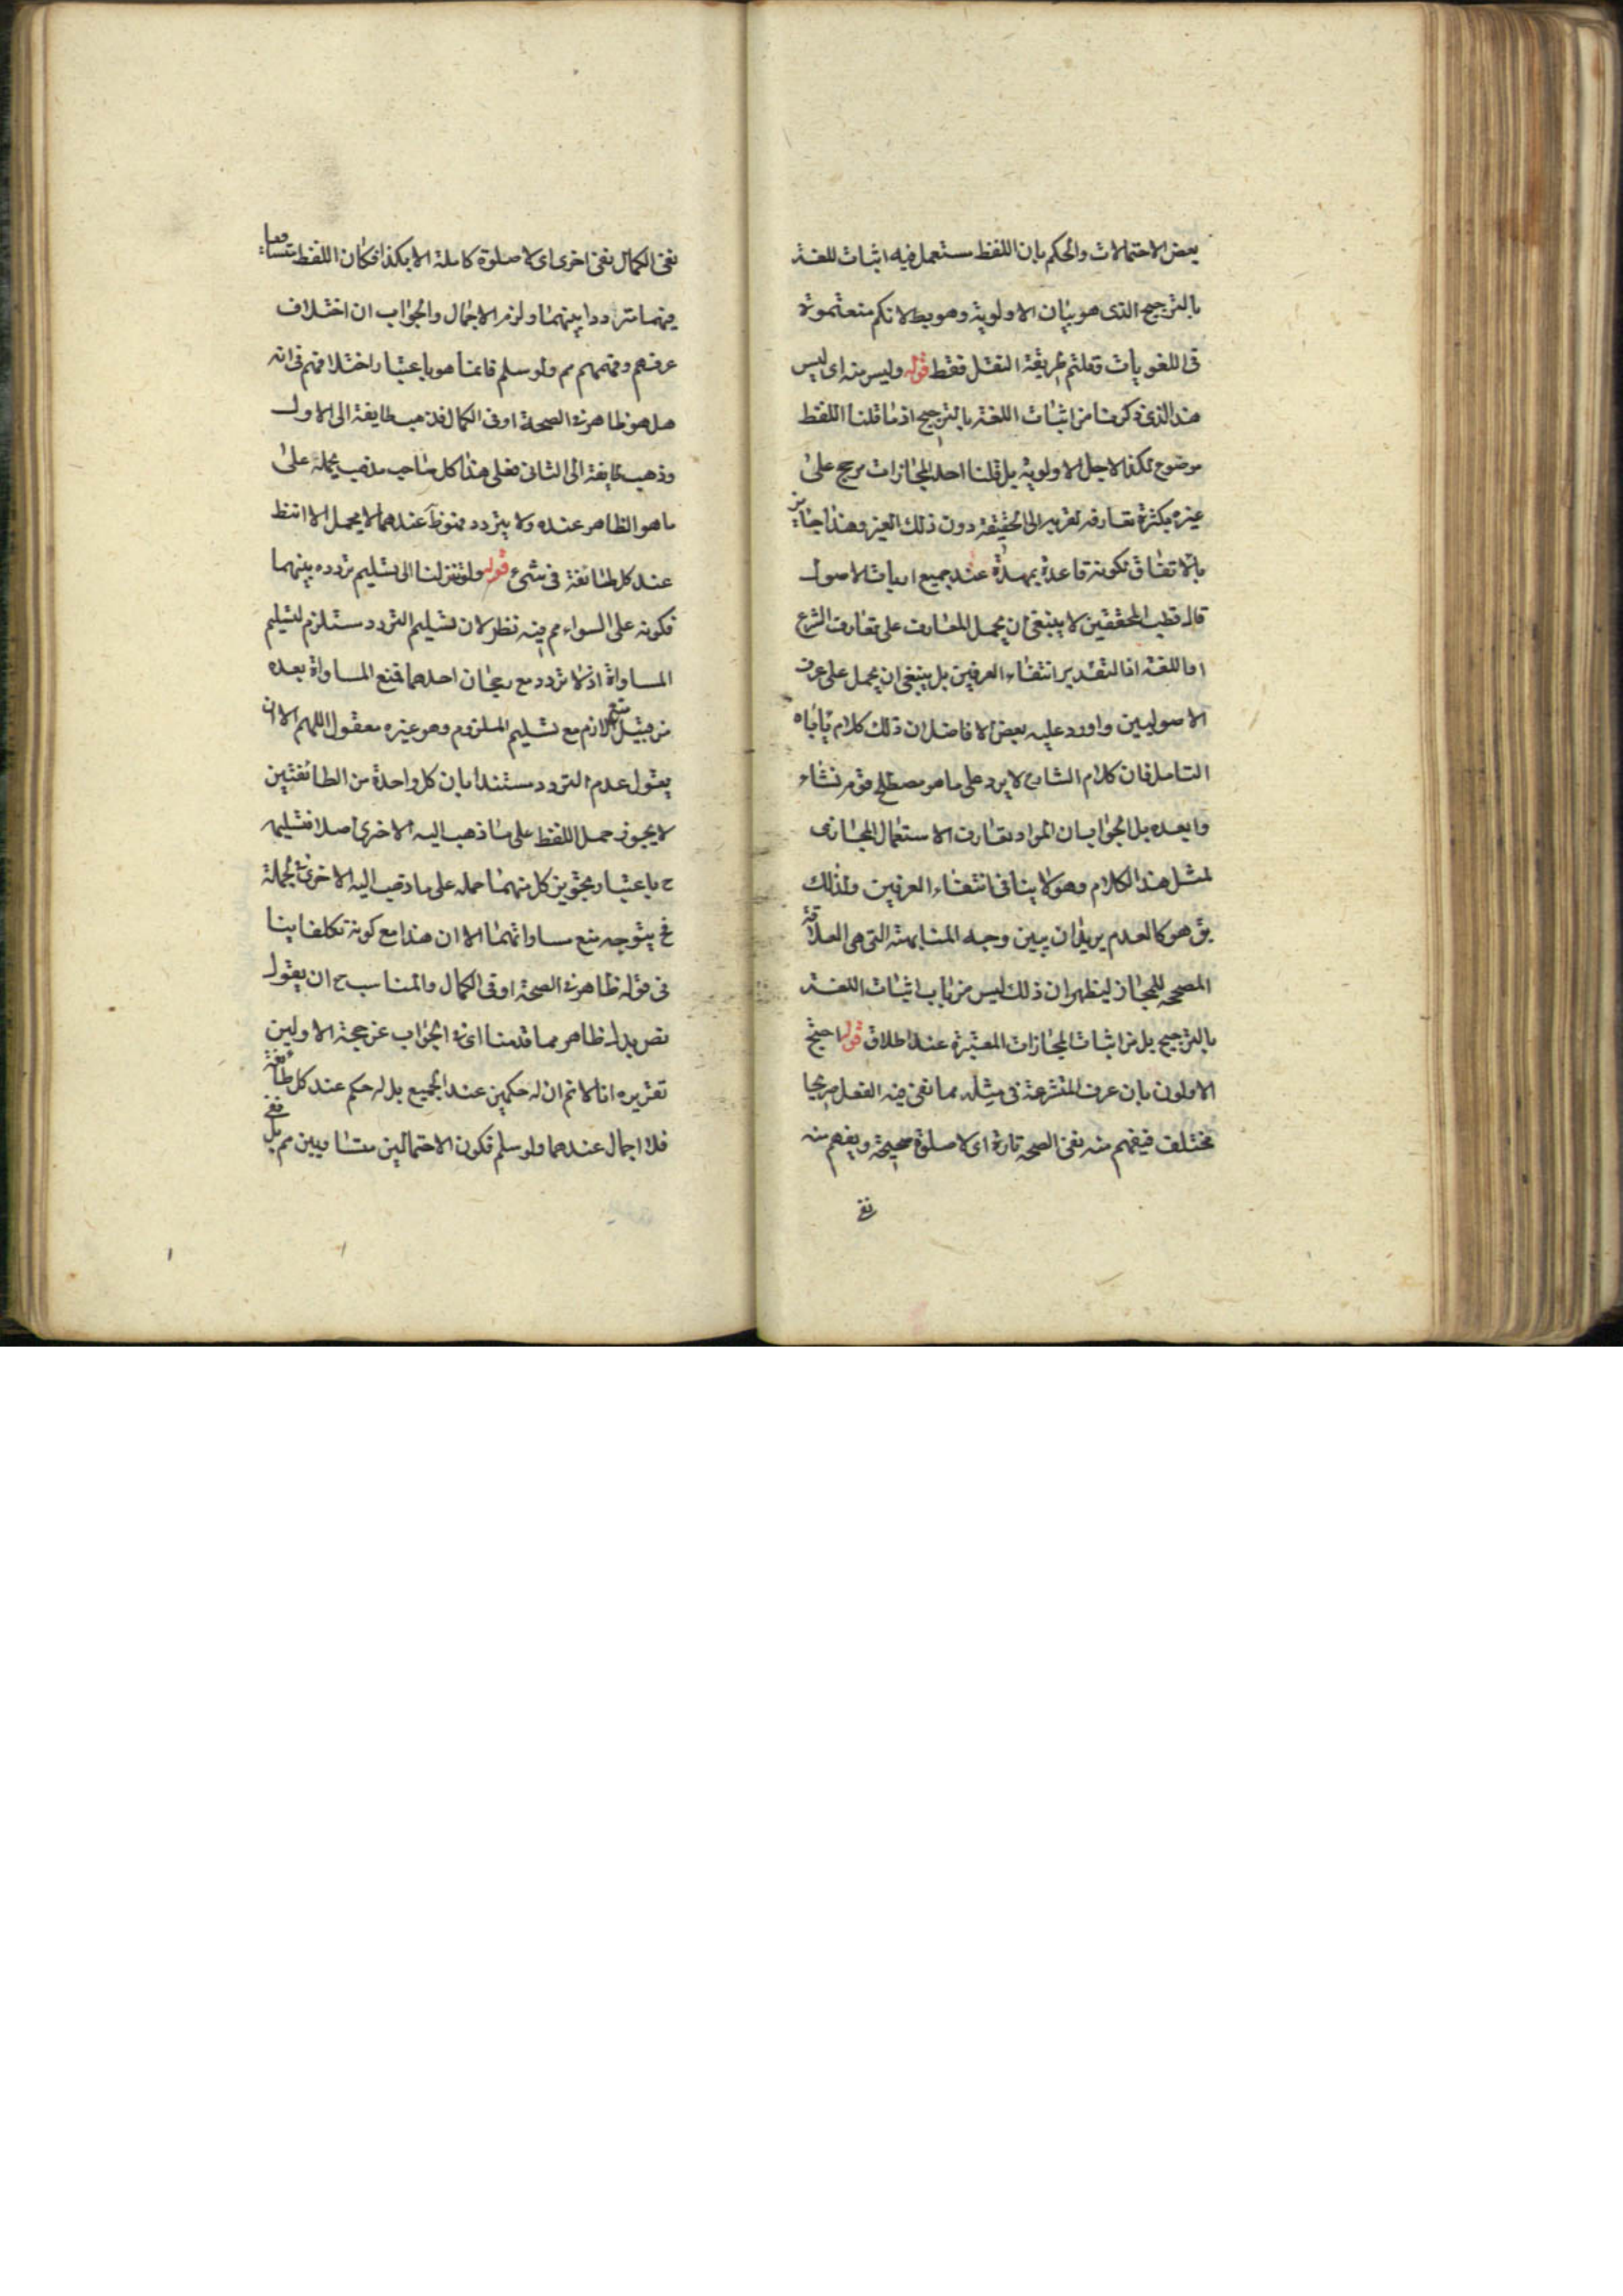 بعض الاحتمالات والحكم بان اللفظ مستعمل فيه اثبات للغة
بالترجيح الذى هو بيان الاولوية وهو بط لانكم منعتموه
فى اللغويات وقلتم طريقة النقل فقط قوله وليس منه اى ليس
هذا الذى ذكرنا من اثبات اللغة بالترجيح اذ ما قلنا اللفظ
موضوع لكذا لاجل الاولوية بل قلنا احد المجازات مرجح على
غيره بكثرة تعارفه لقربه الى الحقيقة دون ذلك الغير وهذا جايز
بالاتفاق لكونه قاعدة ممهدة عند جميع ارباب الاصول
قال قطب المحققين لا ينبغى ان يحمل المتعارف على تعارف الشرع
او اللغة اذ التقدير انتفاء العرفين بل ينبغى ان يحمل على عرف
الاصوليين واورد عليه بعض الافاضل ان ذلك كلام ياباه
التامل فان كلام الشارع لا يرد على ما هو مصطلح قوم نشاء
وا بعده بل الجواب ان المراد تعارف الاستعمال المجازى
لمثل هذا الكلام وهو لا ينافى انتفاء العرفين ولذلك
يق هو كالعدم يريد ان يبين وجه المشابهة التى هى العلاقة
المصححه للمجاز ليظهر ان ذلك ليس من باب اثبات اللغة
بالترجيح بل من اثبات المجازات المعتبرة عند اطلاق قوله احتج
الاولون بان عرف المتشرعة فى مثله مما نفى فيه الفعل صريحا
مختلف فيفهم منه نفى الصحه تارة اى لا صلوة صحيحة ويفهم منه
نفى
نفى الكمال نفى اخرى اى لا صلوة كاملة الا بكذا فكان اللفظ متساويا
فيهما مترددا بينهما ولزم الاجمال والجواب ان اختلاف
عرفهم وفهمهم مم ولو سلم فانما هو باعتبار اختلافهم فى انه
هل هو ظاهر فى الصحة او فى الكمال فذهب طايفة الى الاول
وذهب طايفة الى الثانى فعلى هذا كل صاحب مذهب يحمله على
ما هو الظاهر عنده ولا يتردد عندهما لا يحمل الا
عند كل طائفة فى شىء قوله ولو تنزلنا الى تسليم تردده بينهما
فكونه على السواء مم فيه نظر لان تسليم التردد مستلزم لتسليم
المساواة اذ لا تردد مع رجحان احدهما فمنع المساواة بعده
من قبيل منع اللازم مع تسليم الملزوم وهو غير معقول اللهم الا ان
يقول عدم التردد مستندا بان كل واحدة من الطائفتين
لا يجوز حمل اللفظ على ما ذهب اليه الاخرى اصلا فتسليمه
ح باعتبار تجويز كل منهما حمله على ما ذهب اليه الاخرى فى الجملة
فح يتوجه منع مساواتهما الا ان هذا مع كونه تكلفا ينا
فى قوله ظاهر فى الصحة او فى الكمال والمناسب ح ان يقول
نص بدل ظاهر مما قدمنا اى فى الجواب عن حجة الاولين
تقريره انا لا نم ان له حكمين عند الجميع بل له حكم عند كل طائفة
فلا اجمال عندهما ولو سلم فكون الاحتمالين متساويين مم بل نفى